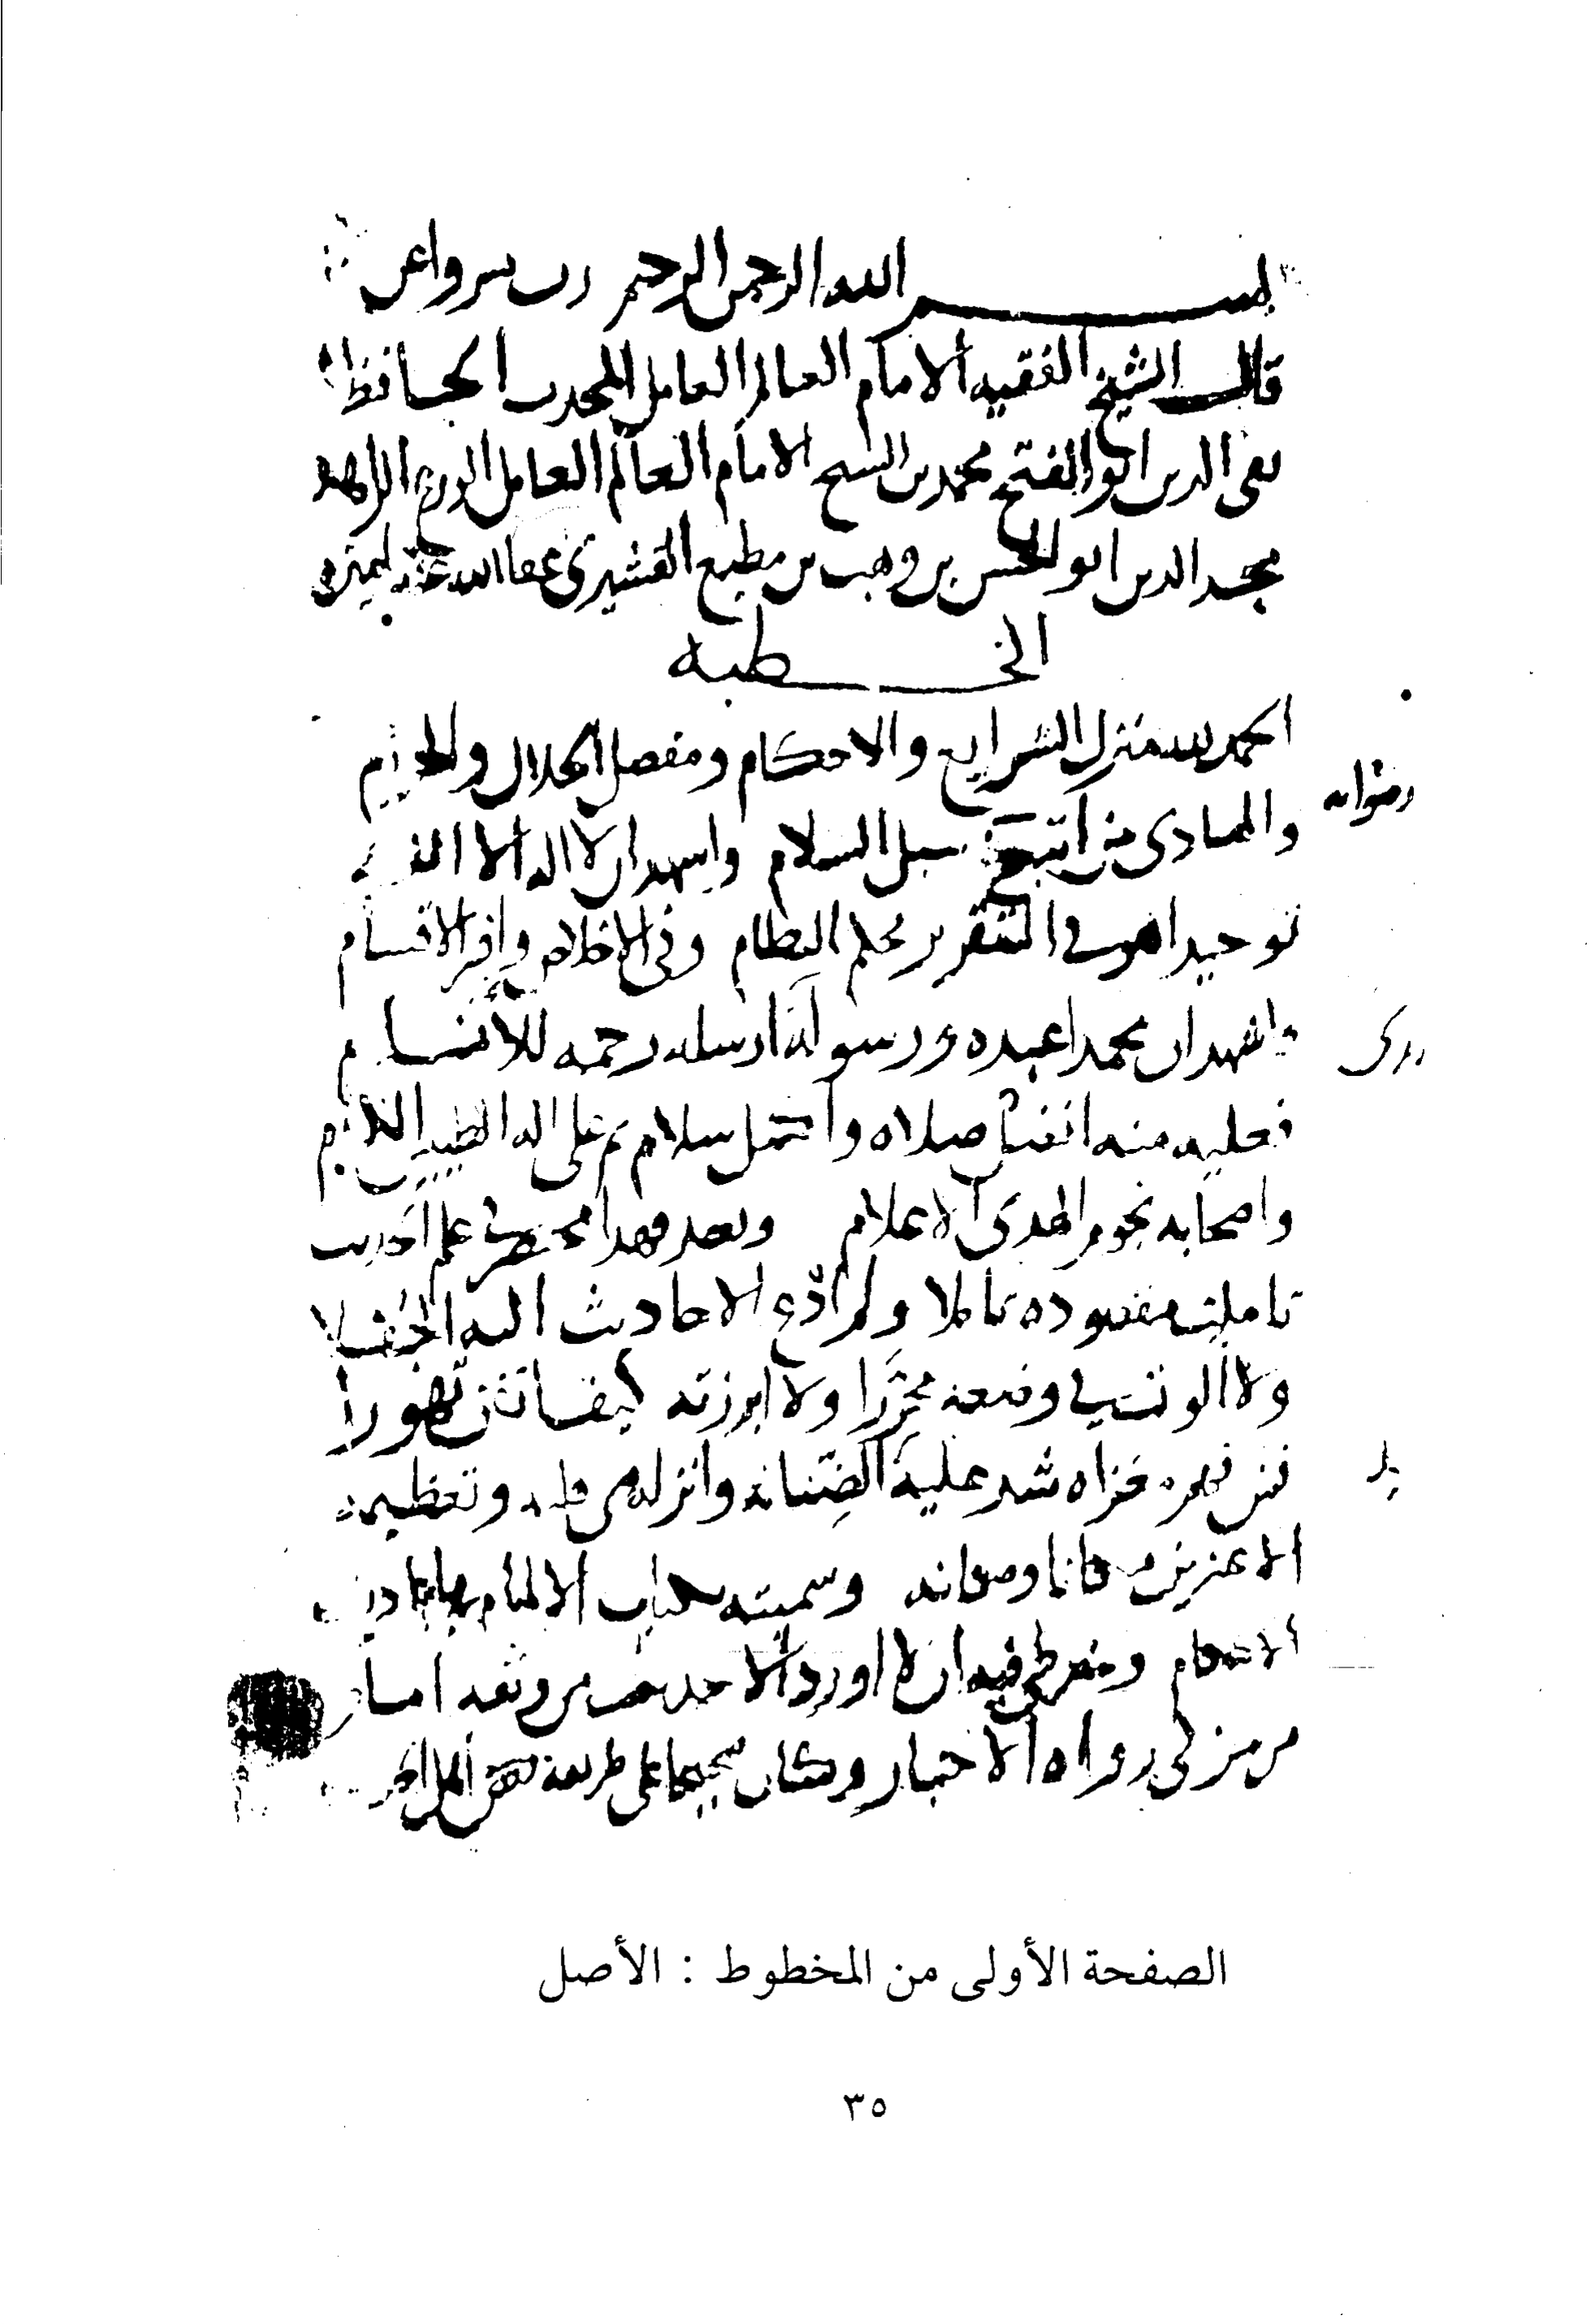 بسم الله الرحمن الرحيم رب يسر واعن
قال الشيخ الفقيه الامام العالم العامل المحدث الحافظ
تقى الدين ابو الفتح محمد بن الشيخ الامام العالم العامل الورع الزاهد
مجد الدين ابو الحسن بن وهب بن مطيع القشيرى عفا الله عنه
الخطبه
الحمد لله منزل الشرايع والاحكام ومفصل الحلال والحرام
والهادى من اتبع سبل السلام واشهد ان لا اله الا الله
رضوانه
توحيدا هو فى التقرير محكم النظام وفى الاخلاص وافر الاقسام
واشهد ان محمدا عبده ورسوله ارسله رحمه للانام
فعليه منه افضل صلاه واكمل سلام ثم على اله الطيبين الكرام
واصحابه نجوم الهدى الاعلام وبعد فهذا مختصر فى علم الحديث
تاملت مقصوده تاملا ولم ادع الاحاديث اليه الجفلا
ولا الوت فى وضعه محررا ولا ابرزته كيف اتفق تهورا
فمن فهم مغزاه شد عليه الضنانه وانزله من قلبه وتعظيمه
الاعزين مكانا ومكانه وسميته بكتاب الالمام باحاديث
الاحكام وشرطى فيه ان لا اورد الا حديث من وثقه امام
من مزكى رواه الاخبار وكان صحيحا على طريقه بعض اهل
الصفحة الأولى من المخطوط : الأصل
٣٥